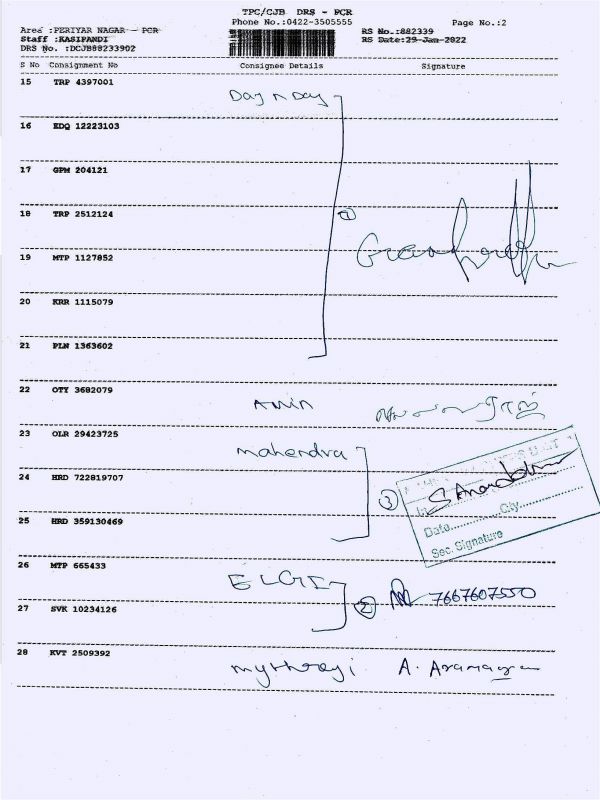 TPC/CJB DRS - PCR
Phone No.:0422-3505555 Page No.:2
Area :PERIYAR NAGAR - PCR RS No.:882339
Staff :KASIPANDI RS Date:29-Jan-2022
DRS No. :DCJB88233902
S No Consignment No Consignee Details Signature
15 TRP 4397001 Day n Day
16 EDQ 12223103
17 GPM 204121
18 TRP 2512124
19 MTP 1127852
20 KRR 1115079
21 PLN 1363602
22 OTY 3682079 Amin
23 OLR 29423725 mahendra
24 HRD 722819707 3
In City
Date
Sec. Signature
25 HRD 359130469
26 MTP 665433 ELGI 2 7667607550
27 SVK 10234126
28 KVT 2509392 mythrayi A.